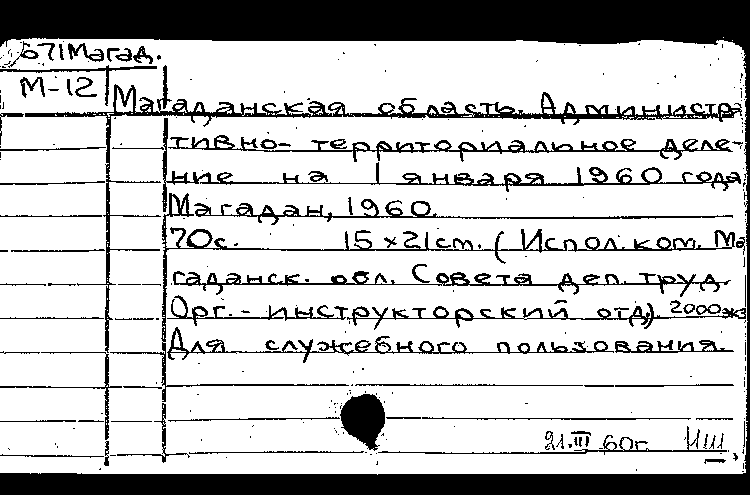 671Магад.
М-12
Магаданская область. Администра
тивно- территориальное деле-
ние на 1 января 1960 года
Магадан, 1960.
70с. 15 x 21cm. (Испол. ком. Ма
гаданск. обл. Совета деп. труд.
Орг.- инструкторский отд.). 2000экз
Для служебного пользования.
21.III 60г.